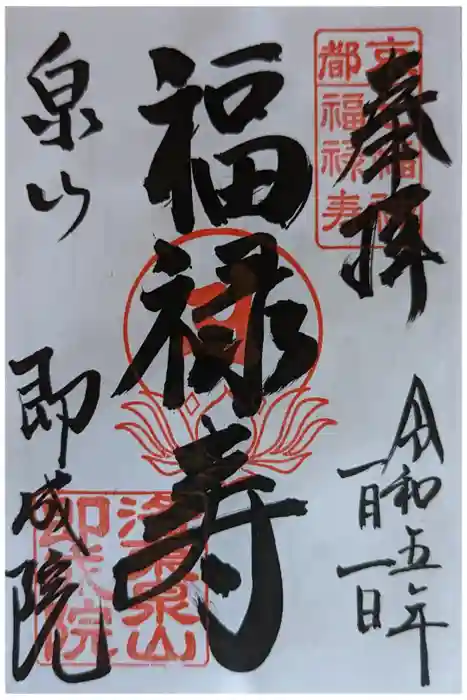 奉拝
令和五年
一月一日
福禄寿
泉山
即成院
京都
福禄寿
泉山
即成院